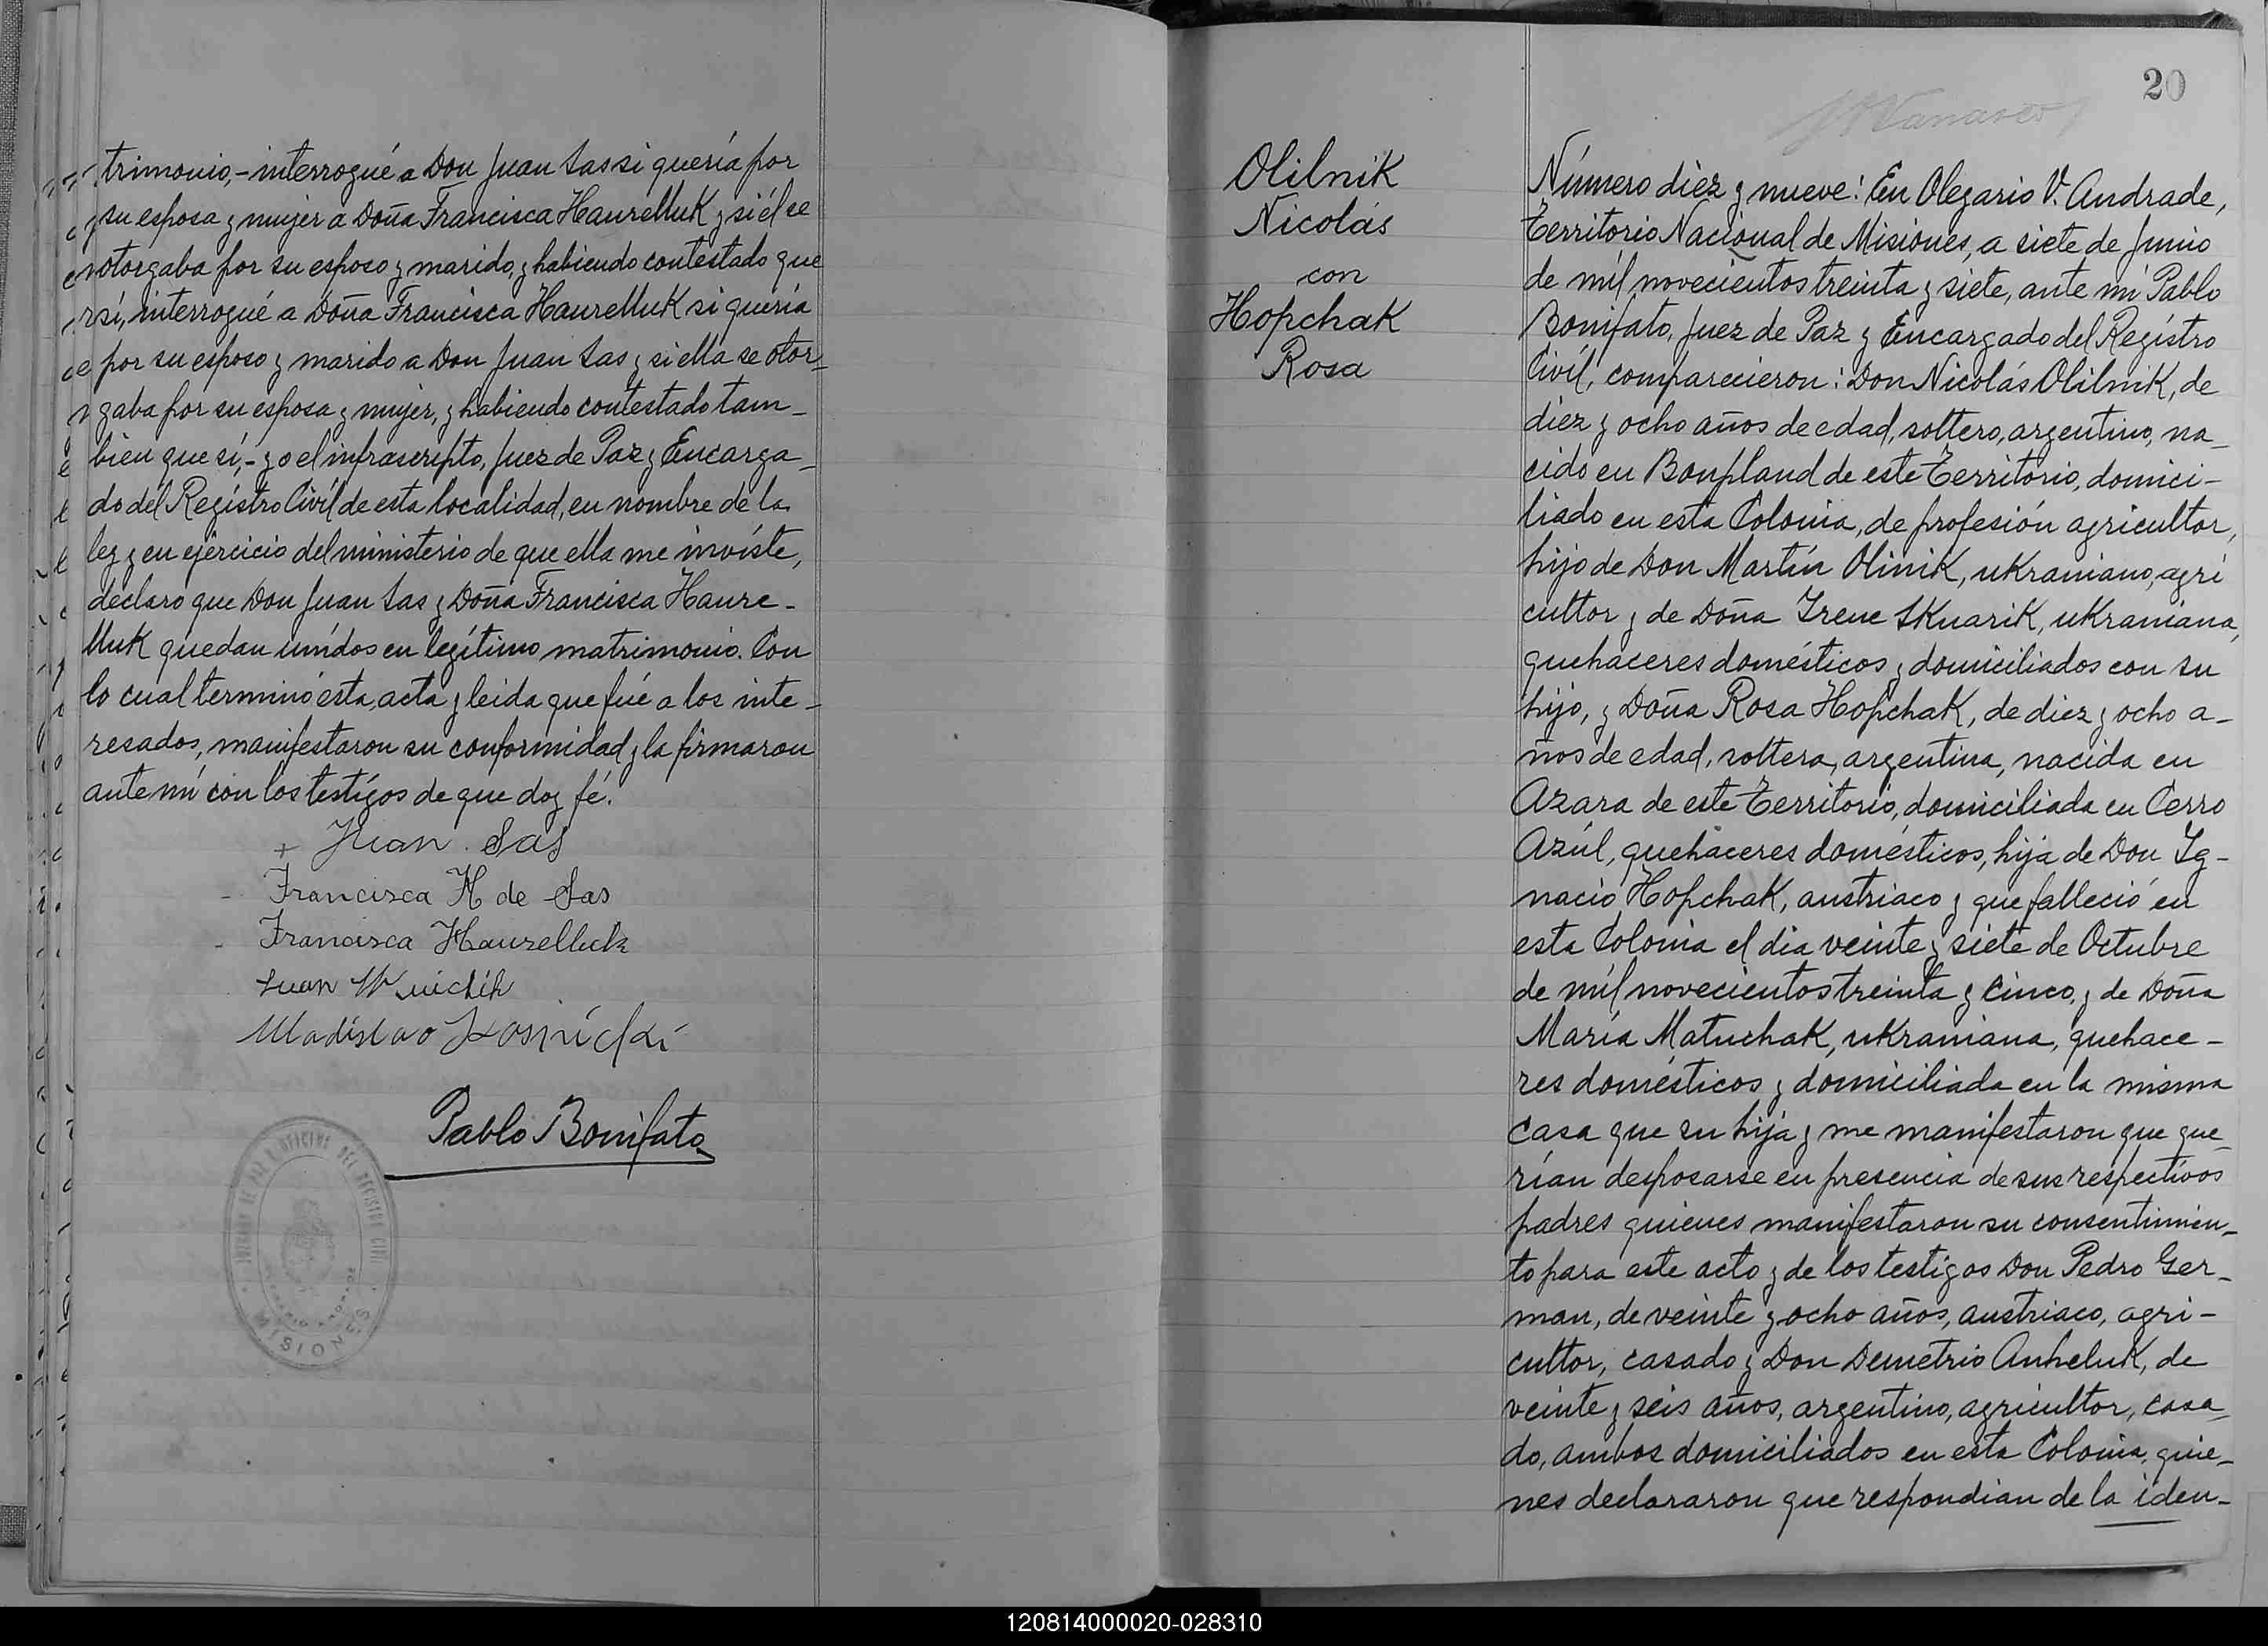 trimonio,- interrogué a Don Juan Sas si quería por
su esposa y mujer a Doña Francisca Haurelluk y si él se
otorgaba por su esposo y marido, y habiendo contestado que
sí, interrogué a Doña Francisca Haurelluk si quería
por su esposo y marido a Don Juan Sas y si ella se otor-
gaba por su esposa y mujer, y habiendo contestado tam-
bien que sí,- yo el infrascripto, Juez de Paz y Encarga-
do del Registro Civíl de esta localidad, en nombre de la
ley y en ejercicio del ministerio de que ella me invíste,
declaro que Don Juan Sas y Doña Francisca Haure-
lluk quedan unídos en legítimo matrimonio. Con
lo cual terminó esta, acta y leida que fué a los inte-
resados, manifestaron su conformidad y la firmaron
ante mí con los testígos de que doy fé.
+ Juan. Sas
Francisca H de Sas
Francisca Haurelluk
Juan
Uladislao
Pablo Bonifato
JUZGADO DE PAZ Y OFICINA DEL REGISTRO CIVIL
MISIONES
20
Olilnik
Nicolás
con
Hopchak
Rosa
Número diez y nueve: En Olegario V. Andrade,
Territorio Nacional de Misiones, a siete de Junio
de míl novecientos treinta y siete, ante mí Pablo
Bonifato, Juez de Paz y Encargado del Regístro
Civíl, comparecieron: Don Nicolás Olilnik, de
diez y ocho años de edad, soltero, argentino, na-
cido en Bonpland de este Territorio, domici-
liado en esta Colonia, de profesión agricultor,
hijo de Don Martín Olinik, ukraniano, agri
cultor y de Doña Irene Skuarik, ukraniana,
quehaceres domésticos y domiciliados con su
hijo, y Doña Rosa Hopchak, de diez y ocho a-
ños de edad, soltera, argentina, nacida en
Azara de este Territorio, domiciliada en Cerro
Azúl, quehaceres domésticos, hija de Don Ig-
nacio Hopchak, austriaco y que falleció en
esta Colonia el dia veinte y siete de Octubre
de míl novecientos treinta y cinco, y de Doña
María Matuchak, ukraniana, quehace-
res domésticos y domiciliada en la misma
casa que su hija y me manifestaron que que-
rían desposarse en presencia de sus respectívos
padres quienes manifestaron su consentimien-
to para este acto y de los testigos Don Pedro Ger-
man, de veinte y ocho años, austriaco, agri-
cultor, casado y Don Demetrio Anheluk, de
veinte y seis años, argentino, agricultor, casa-
do, ambos domiciliados en esta Colonia, quie-
nes declararon que respondian de la iden-
120814000020-028310